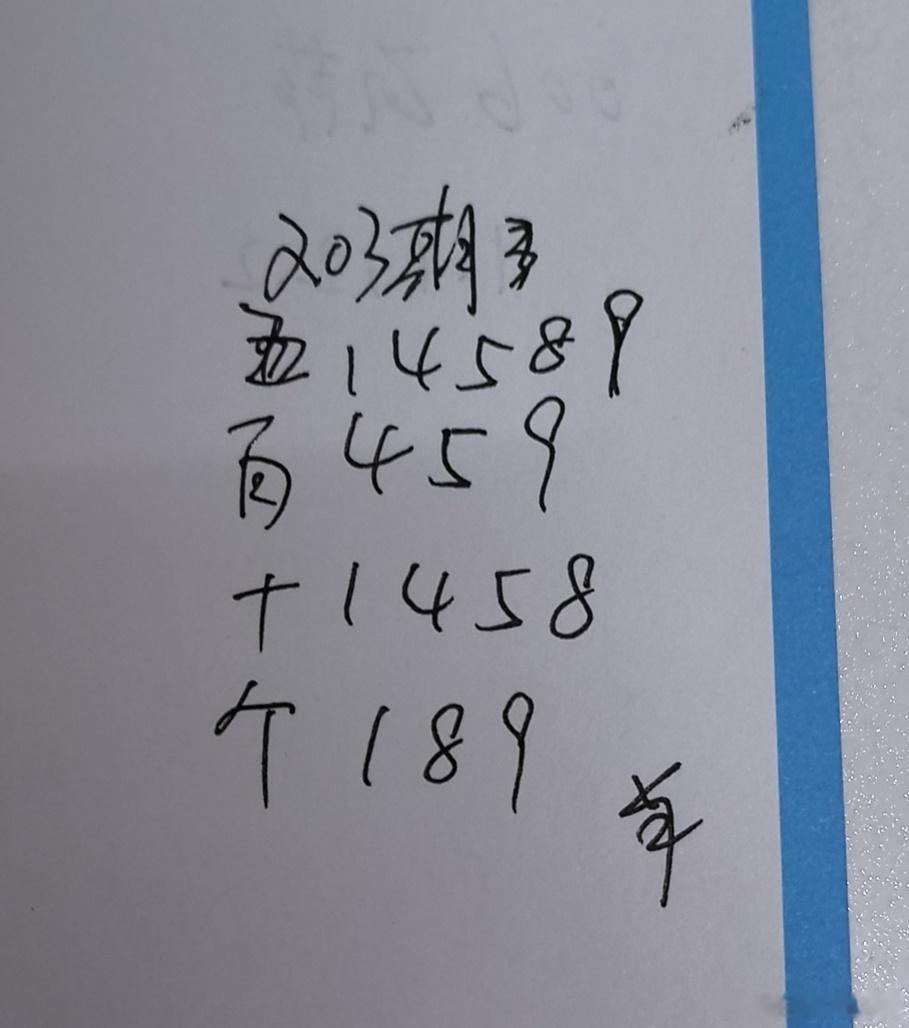 203期
14589
百459
十1458
个189